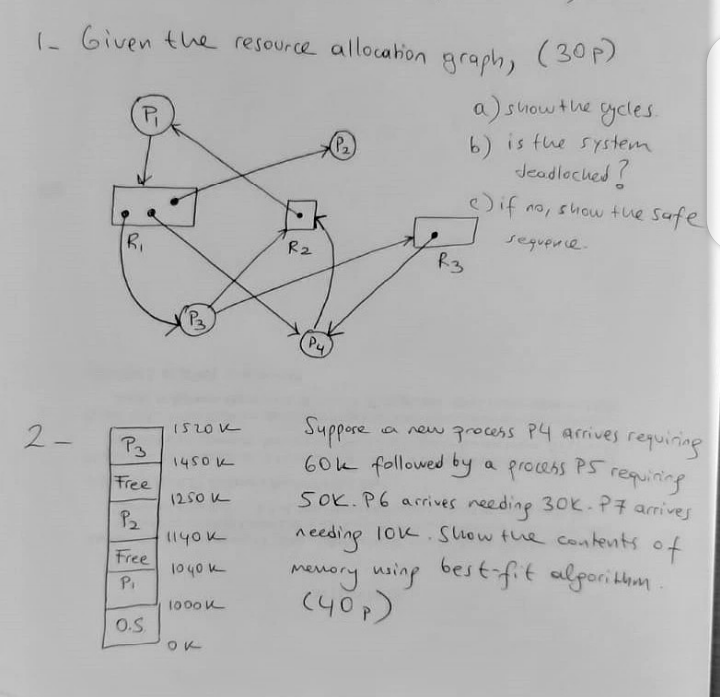 1- Given the resource allocation graph, (30p)
a) show the cycles.
b) is the system
deadlocked?
c) if no, show the safe
sequence.
P1
P2
R1
R2
R3
P3
P4
2-
1520K
P3
1450K
Free
1250K
P2
1140K
Free
1040K
P1
1000K
O.S
0K
Suppose a new process P4 arrives requiring
60k followed by a process P5 requiring
50K. P6 arrives needing 30K. P7 arrives
needing 10K. Show the contents of
memory using best-fit algorithm.
(40p)